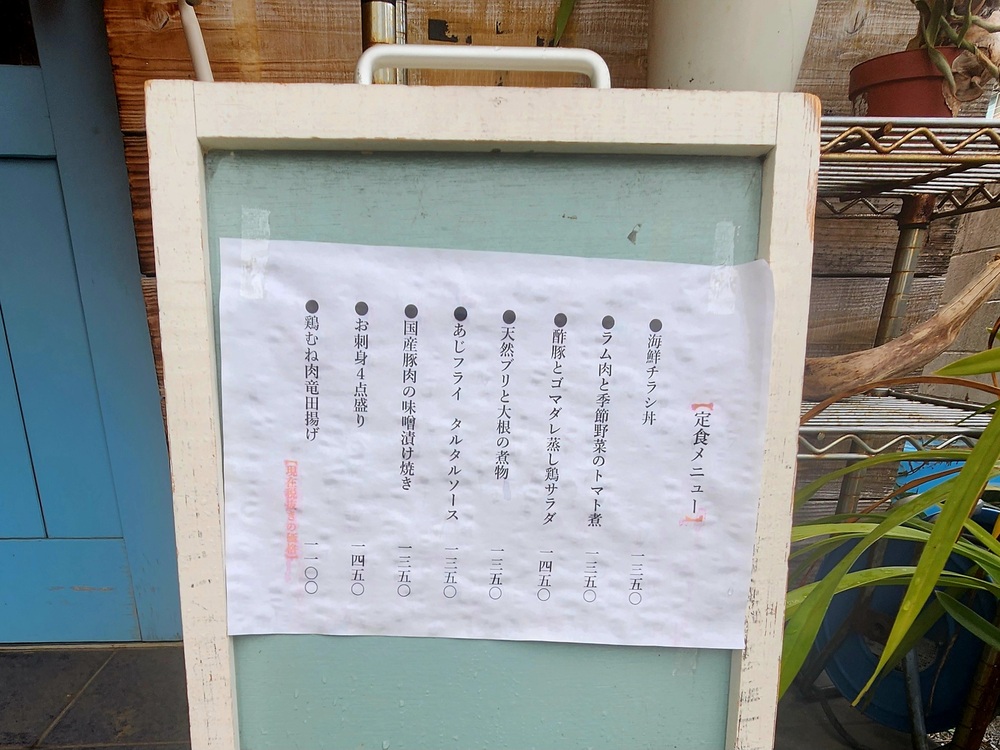 【定食メニュー】
●海鮮チラシ丼 一三五〇
●ラム肉と季節野菜のトマト煮 一三五〇
●酢豚とゴマダレ蒸し鶏サラダ 一四五〇
●天然ブリと大根の煮物 一三五〇
●あじフライ タルタルソース 一三五〇
●国産豚肉の味噌漬け焼き 一三五〇
●お刺身4点盛り 一四五〇
●鶏むね肉竜田揚げ 一一〇〇